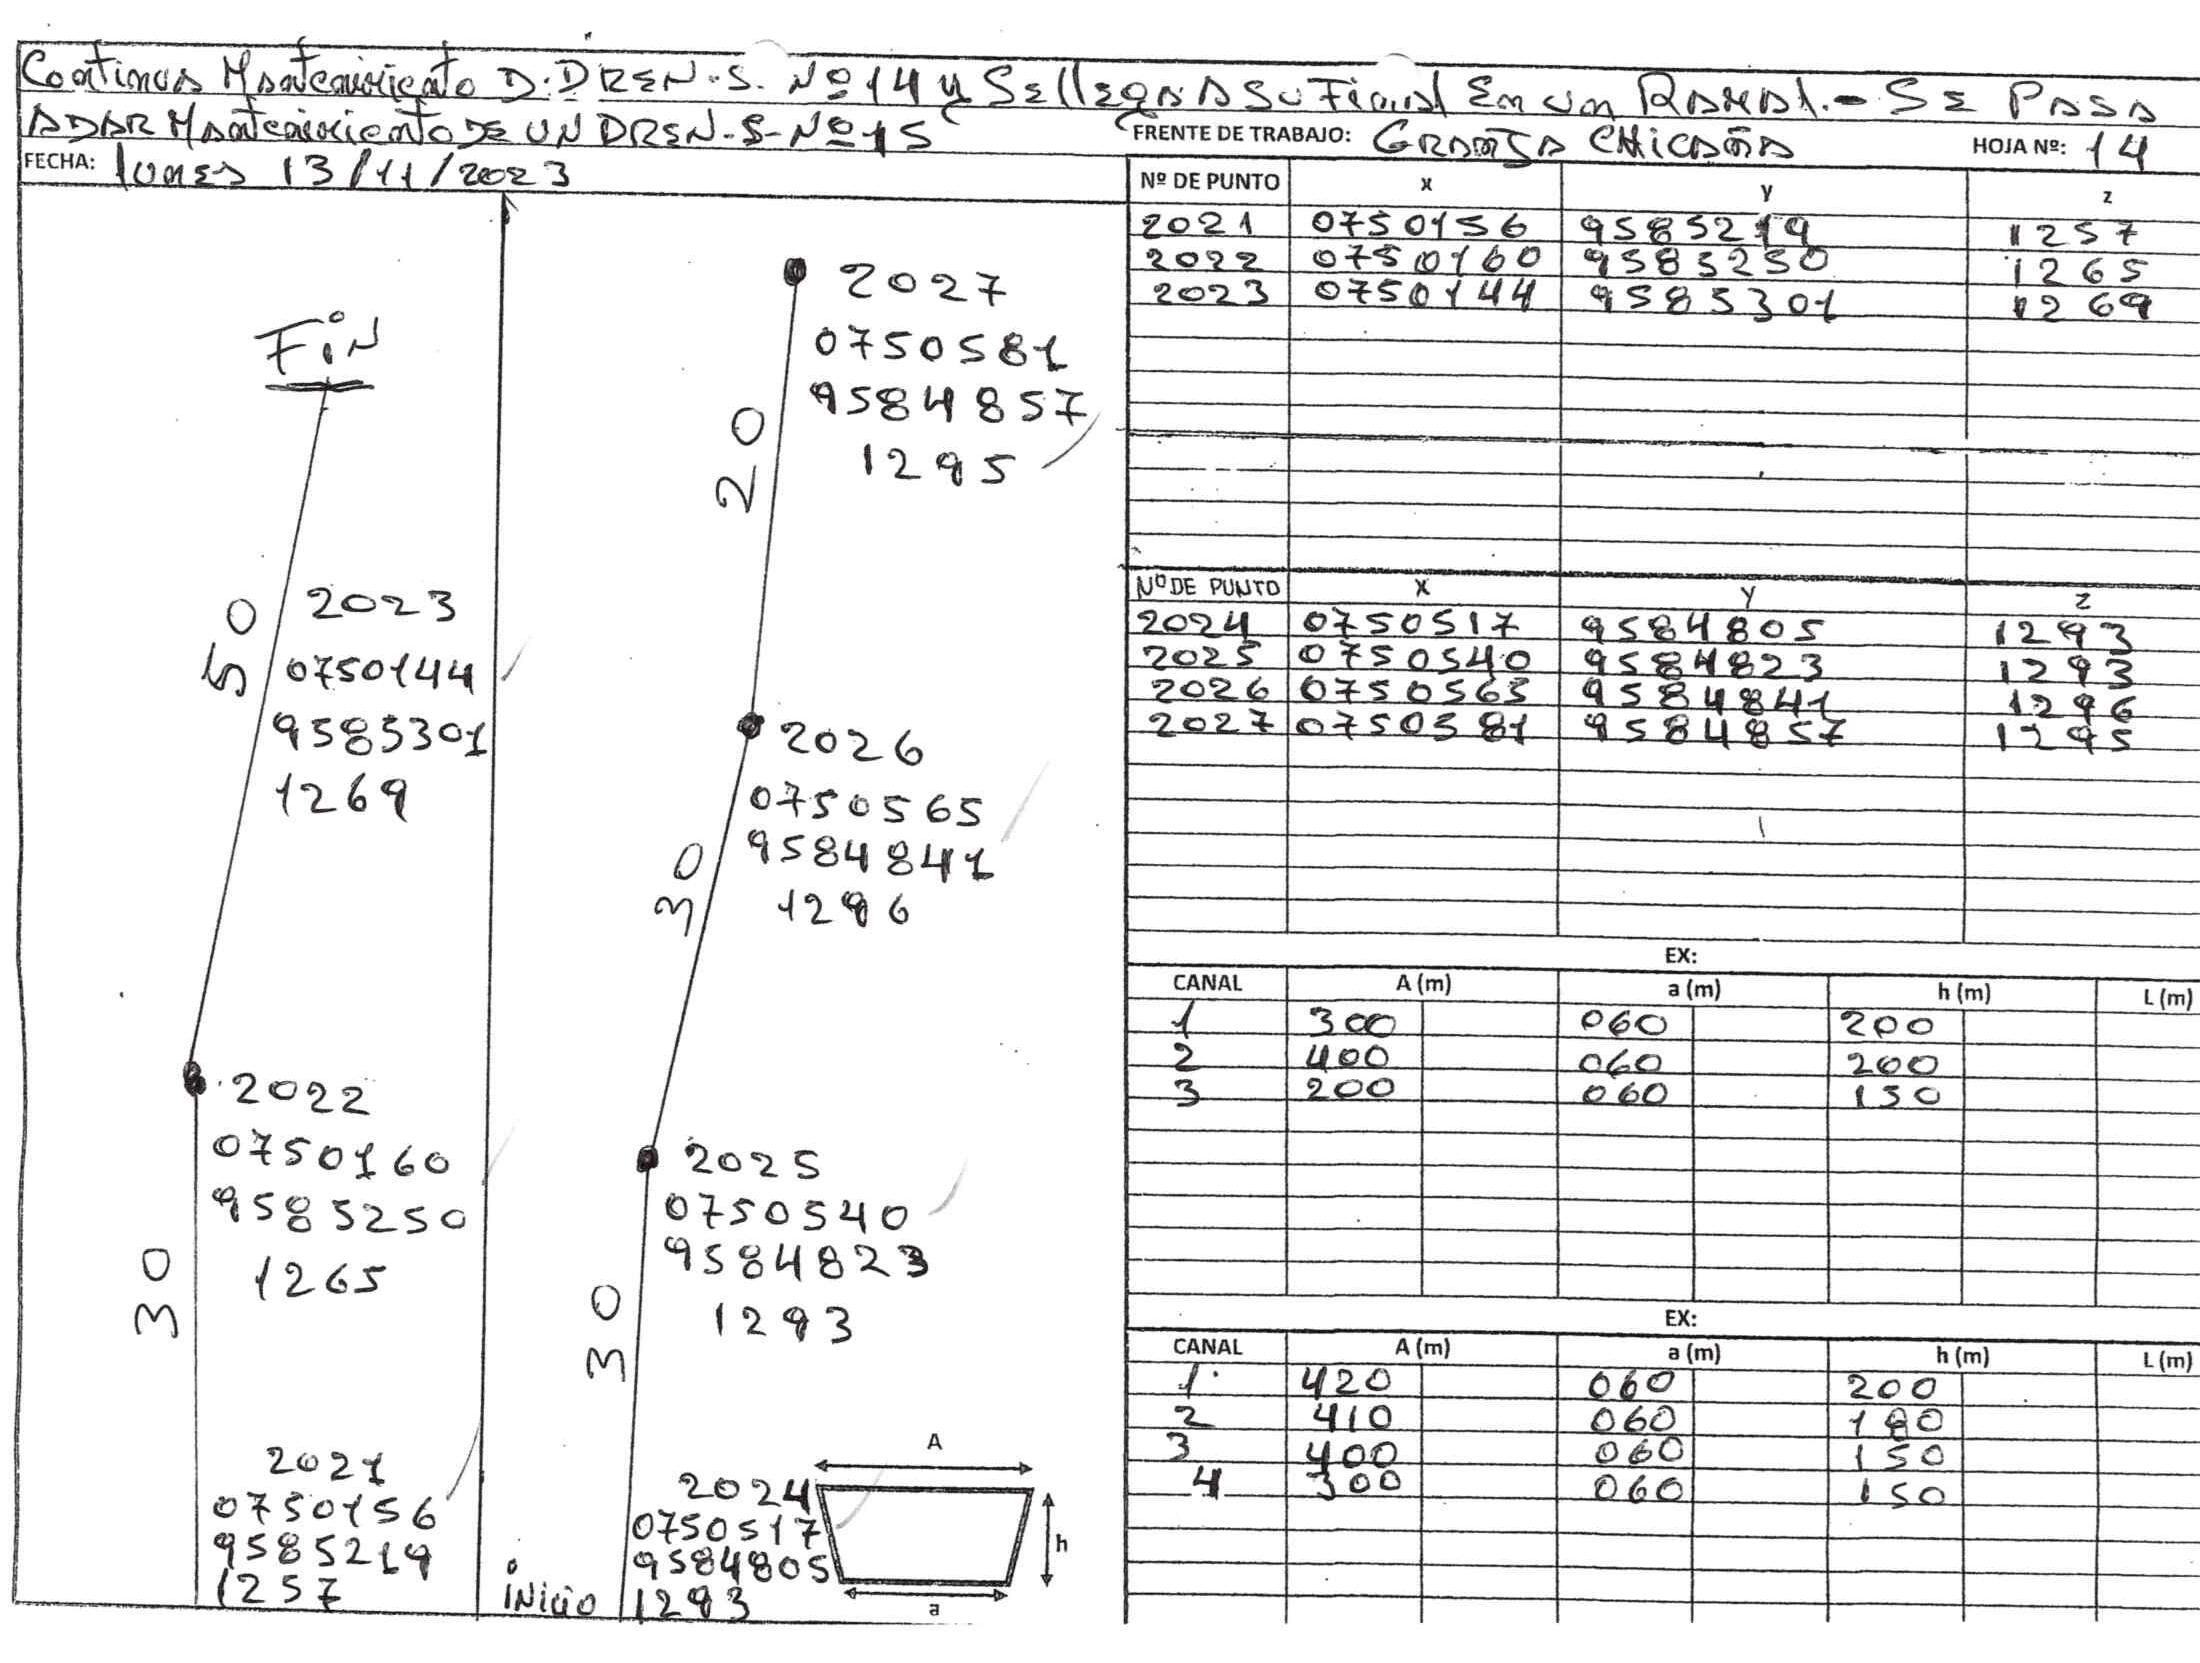 Continua Mantenimiento D. DREN-S. Nº 14 y Se llega a su Final En un RAMAL.- SE PASA
A DAR Mantenimiento DE UN DREN-S-Nº 15
FRENTE DE TRABAJO: GRANJA CHICAÑA HOJA Nº: 14
FECHA: lunes 13/11/2023
FiN
50
2023
0750144
9585301
1269
2022
0750160
9585250
1265
30
2021
0750156
9585219
1257
2027
0750581
9584857
1295
20
2026
0750565
9584841
1296
30
2025
0750540
9584823
1293
30
2024
0750517
9584805
1293
iNicio
A
h
a
Nº DE PUNTO x y z
2021 0750156 9585219 1257
2022 0750160 9585250 1265
2023 0750144 9585301 1269
Nº DE PUNTO X Y Z
2024 0750517 9584805 1293
2025 0750540 9584823 1293
2026 0750565 9584841 1296
2027 0750581 9584857 1295
EX:
CANAL A (m) a (m) h (m) L (m)
1 300 060 200
2 400 060 200
3 200 060 150
EX:
CANAL A (m) a (m) h (m) L (m)
1 420 060 200
2 410 060 180
3 400 060 150
4 300 060 150